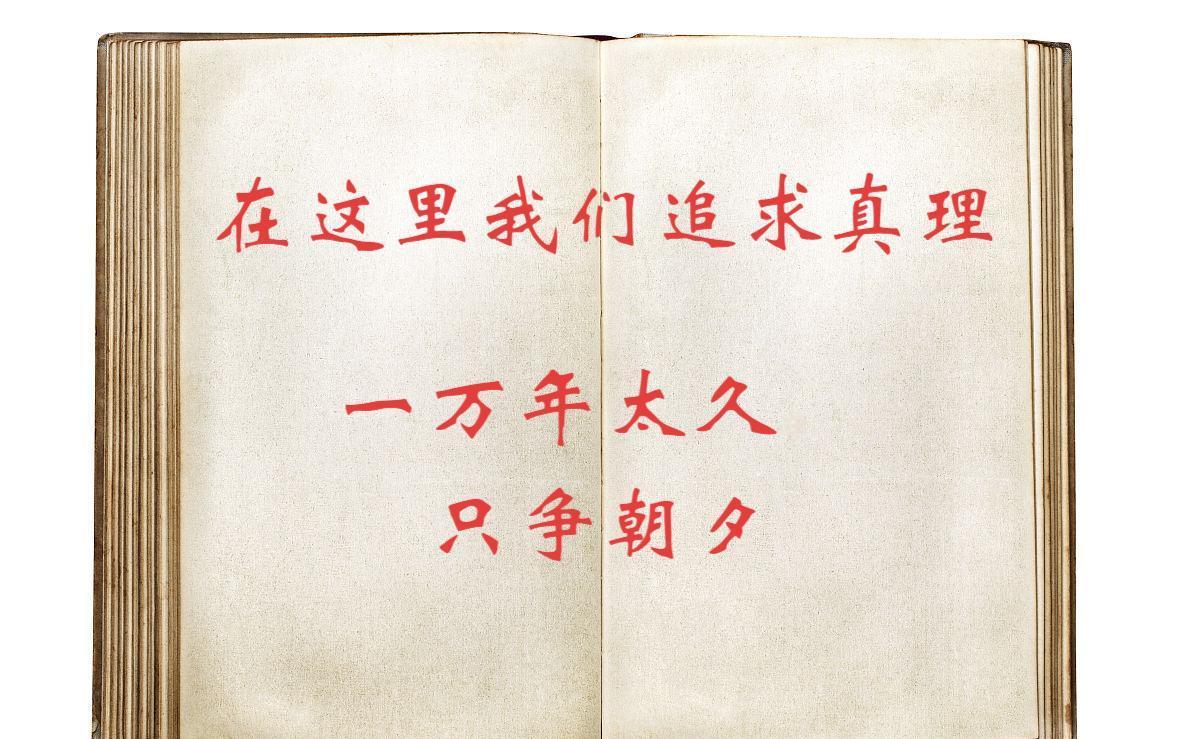 在这里我们追求真理
一万年太久
只争朝夕